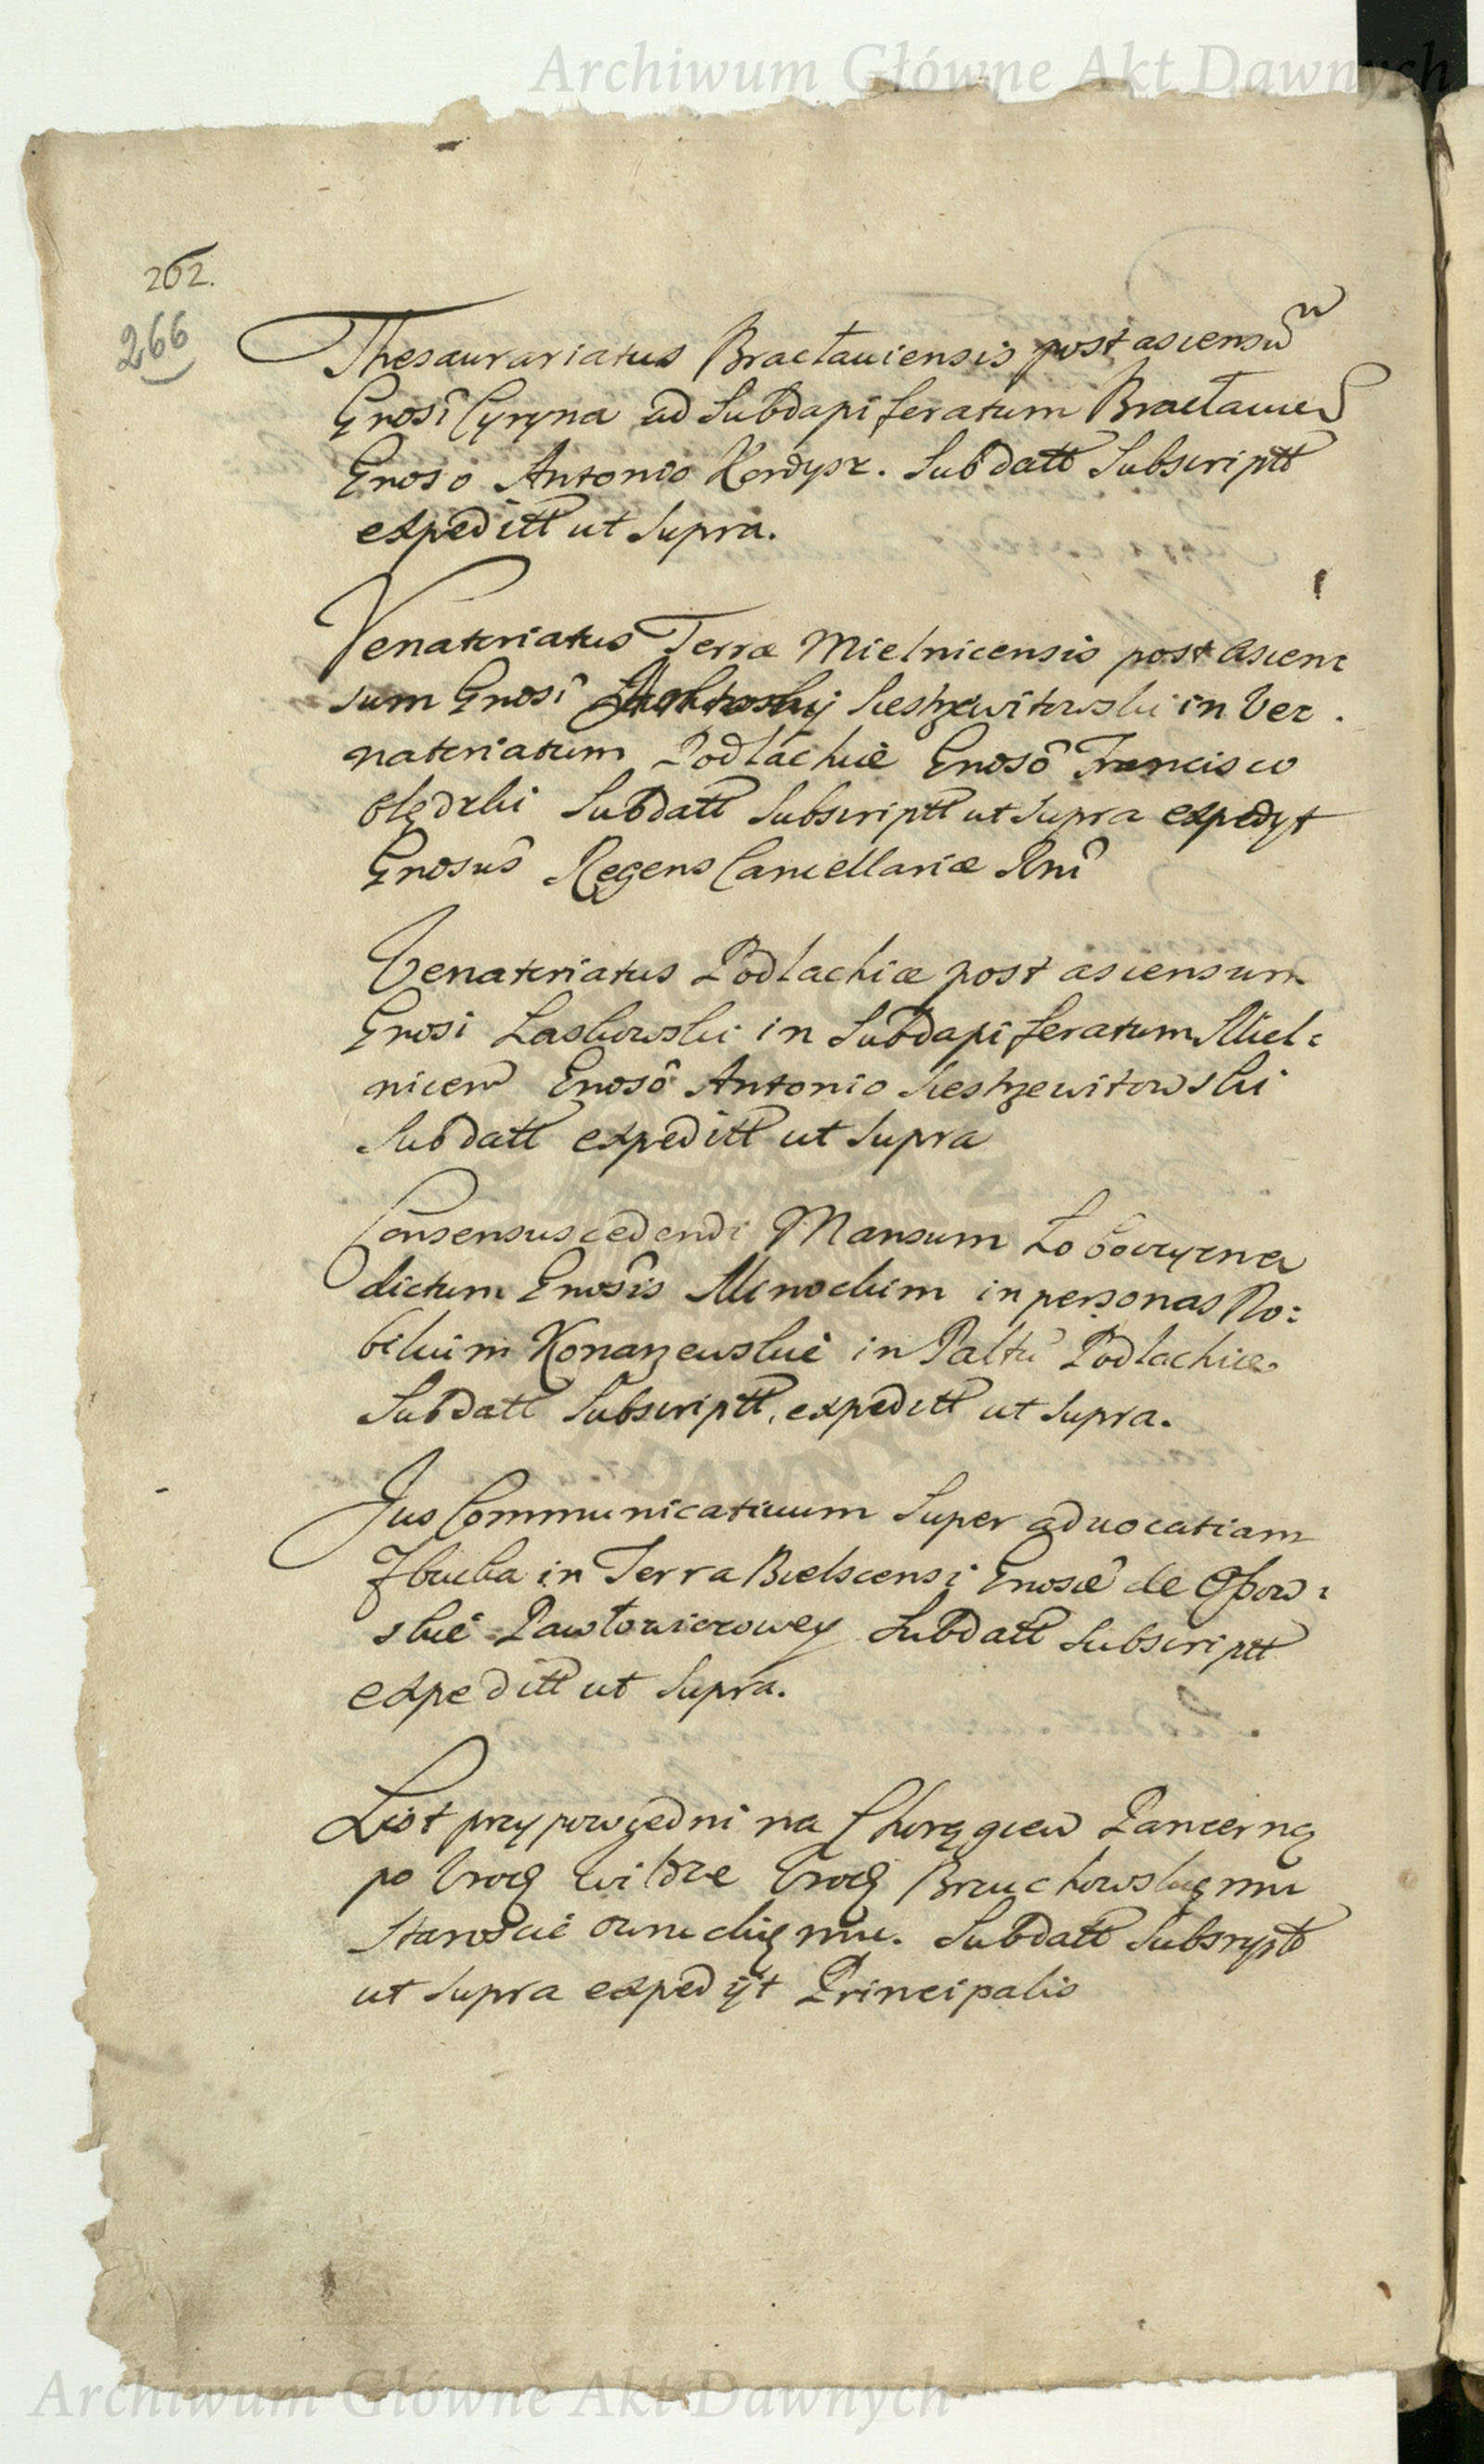 Archiwum Główne Akt Dawnych
262.
266
Thesaurariatus Bracłauiensis post ascensũ
Gnosi Cyryna ad Subdapiferatum Bracłauien
Gnoso Antonio Kordysz. Subdatt Subscriptt
expeditt ut Supra.
Venatoriatus Terræ Mielnicensis post Ascen:
sum Gnosi in Ve:
natoriatum Podlachiæ Gnoso Francisco
Olędzki Subdatt Subscriptt ut Supra expedyt
Gnosus Regens Cancellariæ Rni
Venatoriatus Podlachiæ post ascensum
Gnosi Laskowski in Subdapiferatum Miel:
nicen Gnoso Antonio
Subdatt expeditt ut Supra
Consensus cedendi Mansum
dictum Gnosis in personas No:
bilium in Paltu Podlachiæ.
Subdatt Subscriptt, expeditt ut Supra.
Jus Communicatiuum Super aduocatiam
in Terra Bielscensi Gnosæ de
Pawłowiczowey Subdatt Subscriptt
expeditt ut Supra.
List przypowiedni na Chorągiew Pancerną
po Urodz Wildze Urodz Brzuchowskiemu
Staroscie Subdatt Subsrypt
ut Supra expedijt Principalis
Archiwum Główne Akt Dawnych